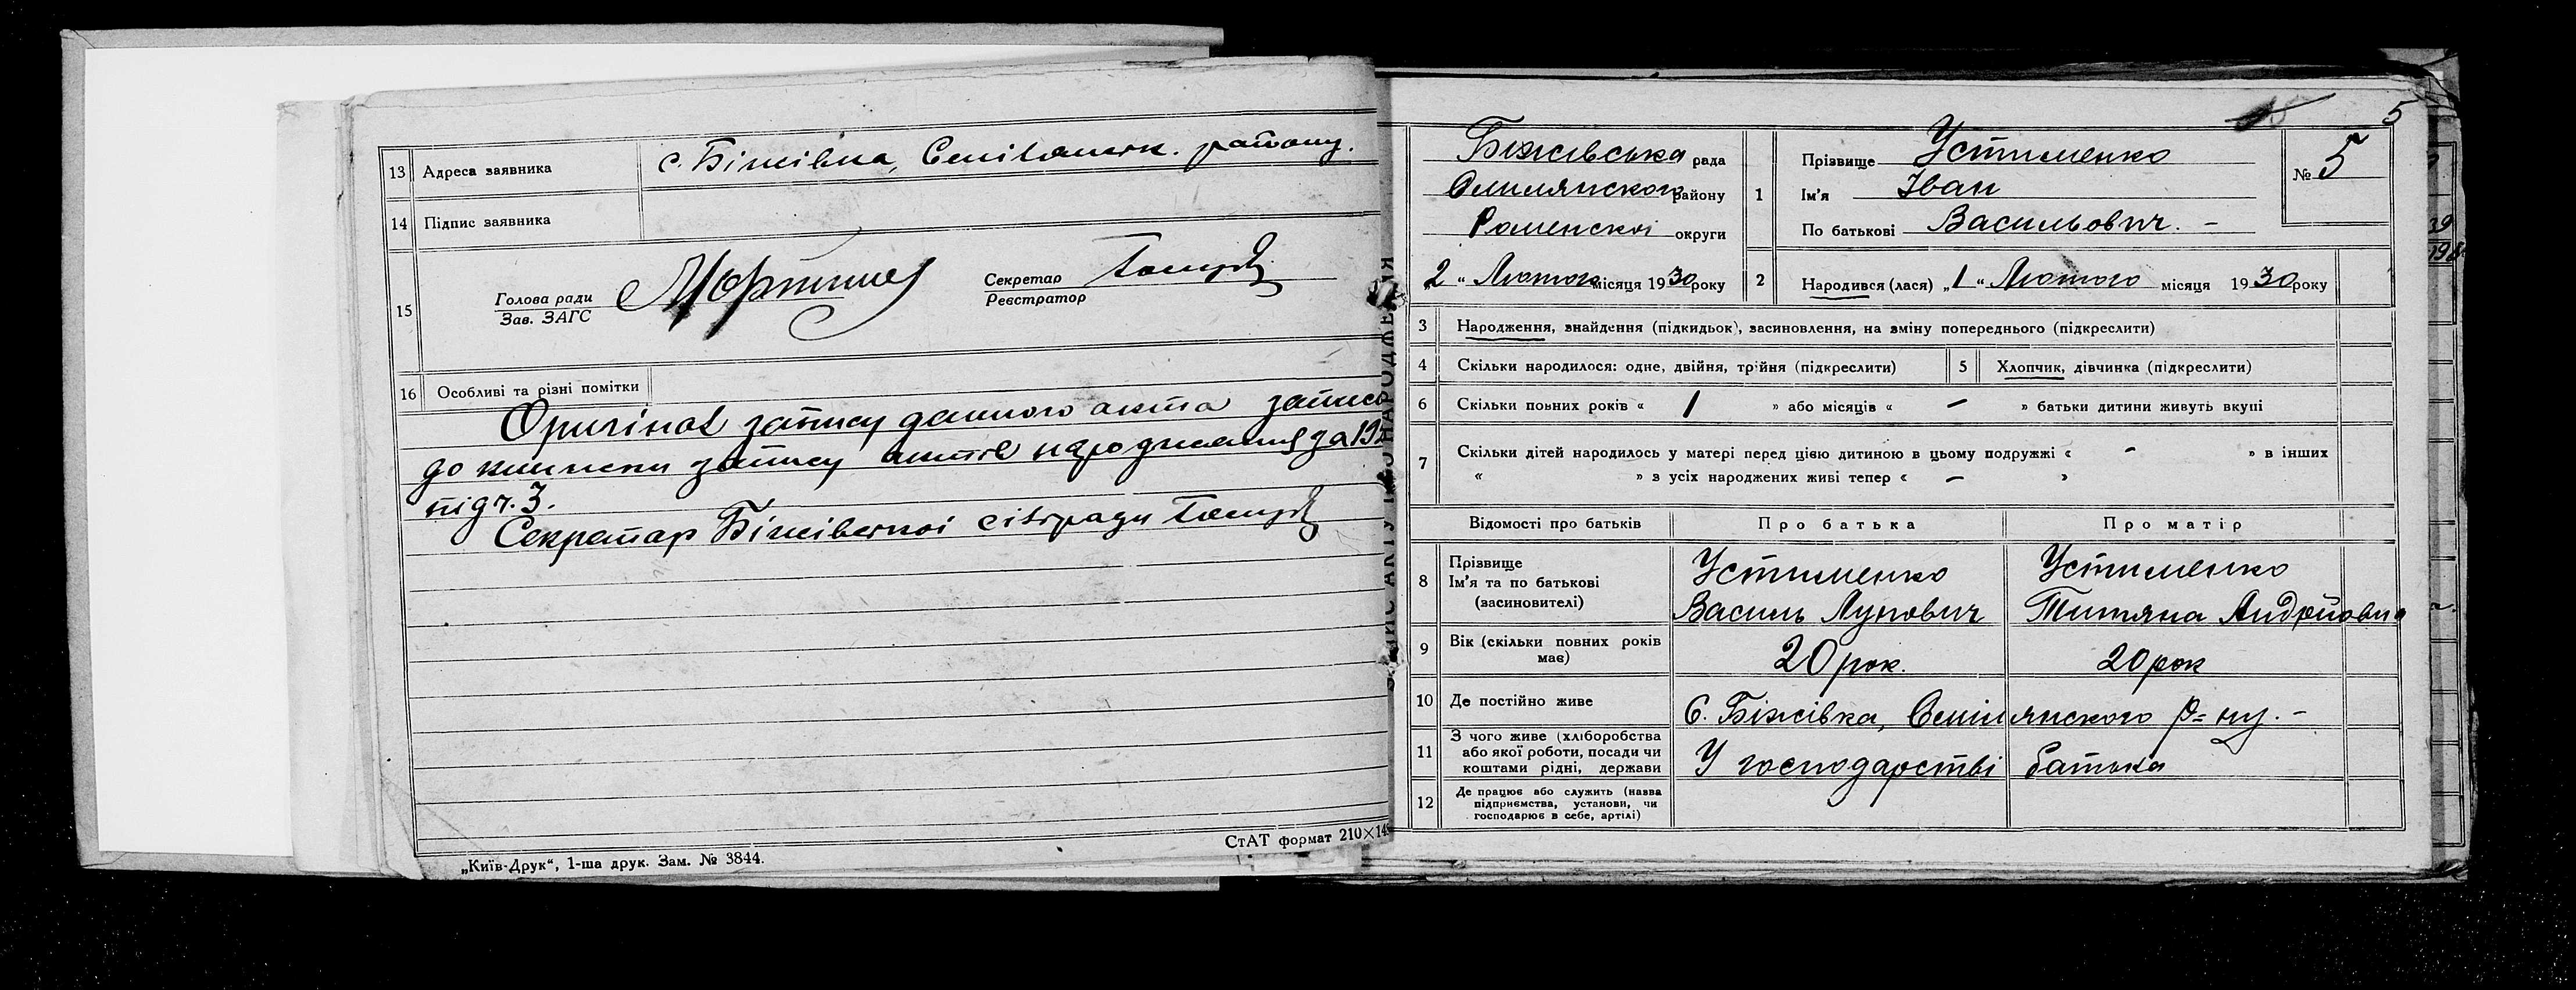 13 Адреса заявника с. Біжівка, Смілянськ. району.
14 Підпис заявника
15 Голова ради
Зав. ЗАГС
Секретар
Реєстратор
16 Особливі та різні помітки
Оригінал запису данного акта записа
до книжки запису актів народження за 19
під ч. 3.
Секретар Біжівської сільради
СтАТ формат 210×14
„Київ-Друк“, 1-ша друк. Зам. № 3844.
5
Біжівська рада
Смилянского району
Роменскої округи
2 “ Лютого місяця 1930 року
1 Прізвище Устименко
Ім'я Іван
По батькові Васильович. -
№ 5
2 Народився (лася) „1“ Лютого місяця 1930 року
3 Народження, знайдення (підкидьок), засиновлення, на зміну попереднього (підкреслити)
4 Скільки народилося: одне, двійня, трійня (підкреслити) 5 Хлопчик, дівчинка (підкреслити)
6 Скільки повних років « 1 » або місяців « - » батьки дитини живуть вкупі
7 Скільки дітей народилось у матері перед цією дитиною в цьому подружжі « - » в інших
« » з усіх народжених живі тепер « - »
Відомості про батьків Про батька Про матір
8 Прізвище
Ім'я та по батькові
(засиновителі)
Устименко
Василь Лупович
Устименко
Титяна Андрійовна
9 Вік (скільки повних років
має)
20 рок. 20 рок
10 Де постійно живе С. Біжівка, Смілянского р=ну. -
11 З чого живе (хліборобства
або якої роботи, посади чи
коштами рідні, держави
У господарстві батька
12 Де працює або служить (назва
підприємства, установи, чи
господарює в себе, артілі)